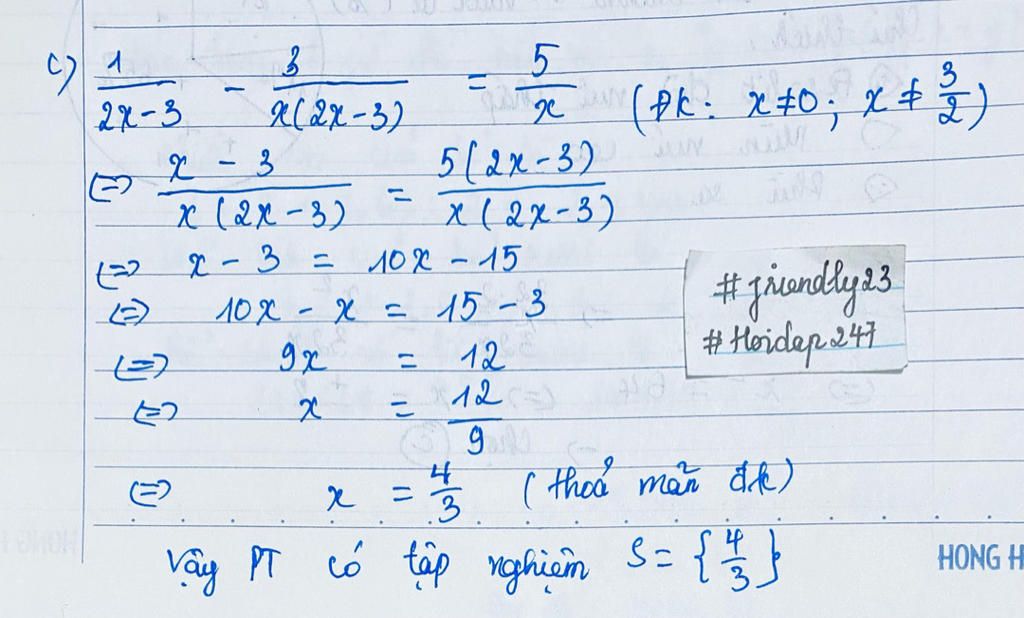 c) 1/(2x-3) - 3/(x(2x-3)) = 5/x (Đk: x≠0; x≠3/2)
(=) (x - 3)/(x(2x-3)) = 5(2x-3)/(x(2x-3))
(=) x - 3 = 10x - 15
(=) 10x - x = 15 - 3
(=) 9x = 12
(=) x = 12/9
(=) x = 4/3 (thoả mãn đk)
Vậy PT có tập nghiệm S = {4/3}
#friendly23
#Hoidap247
HONG H